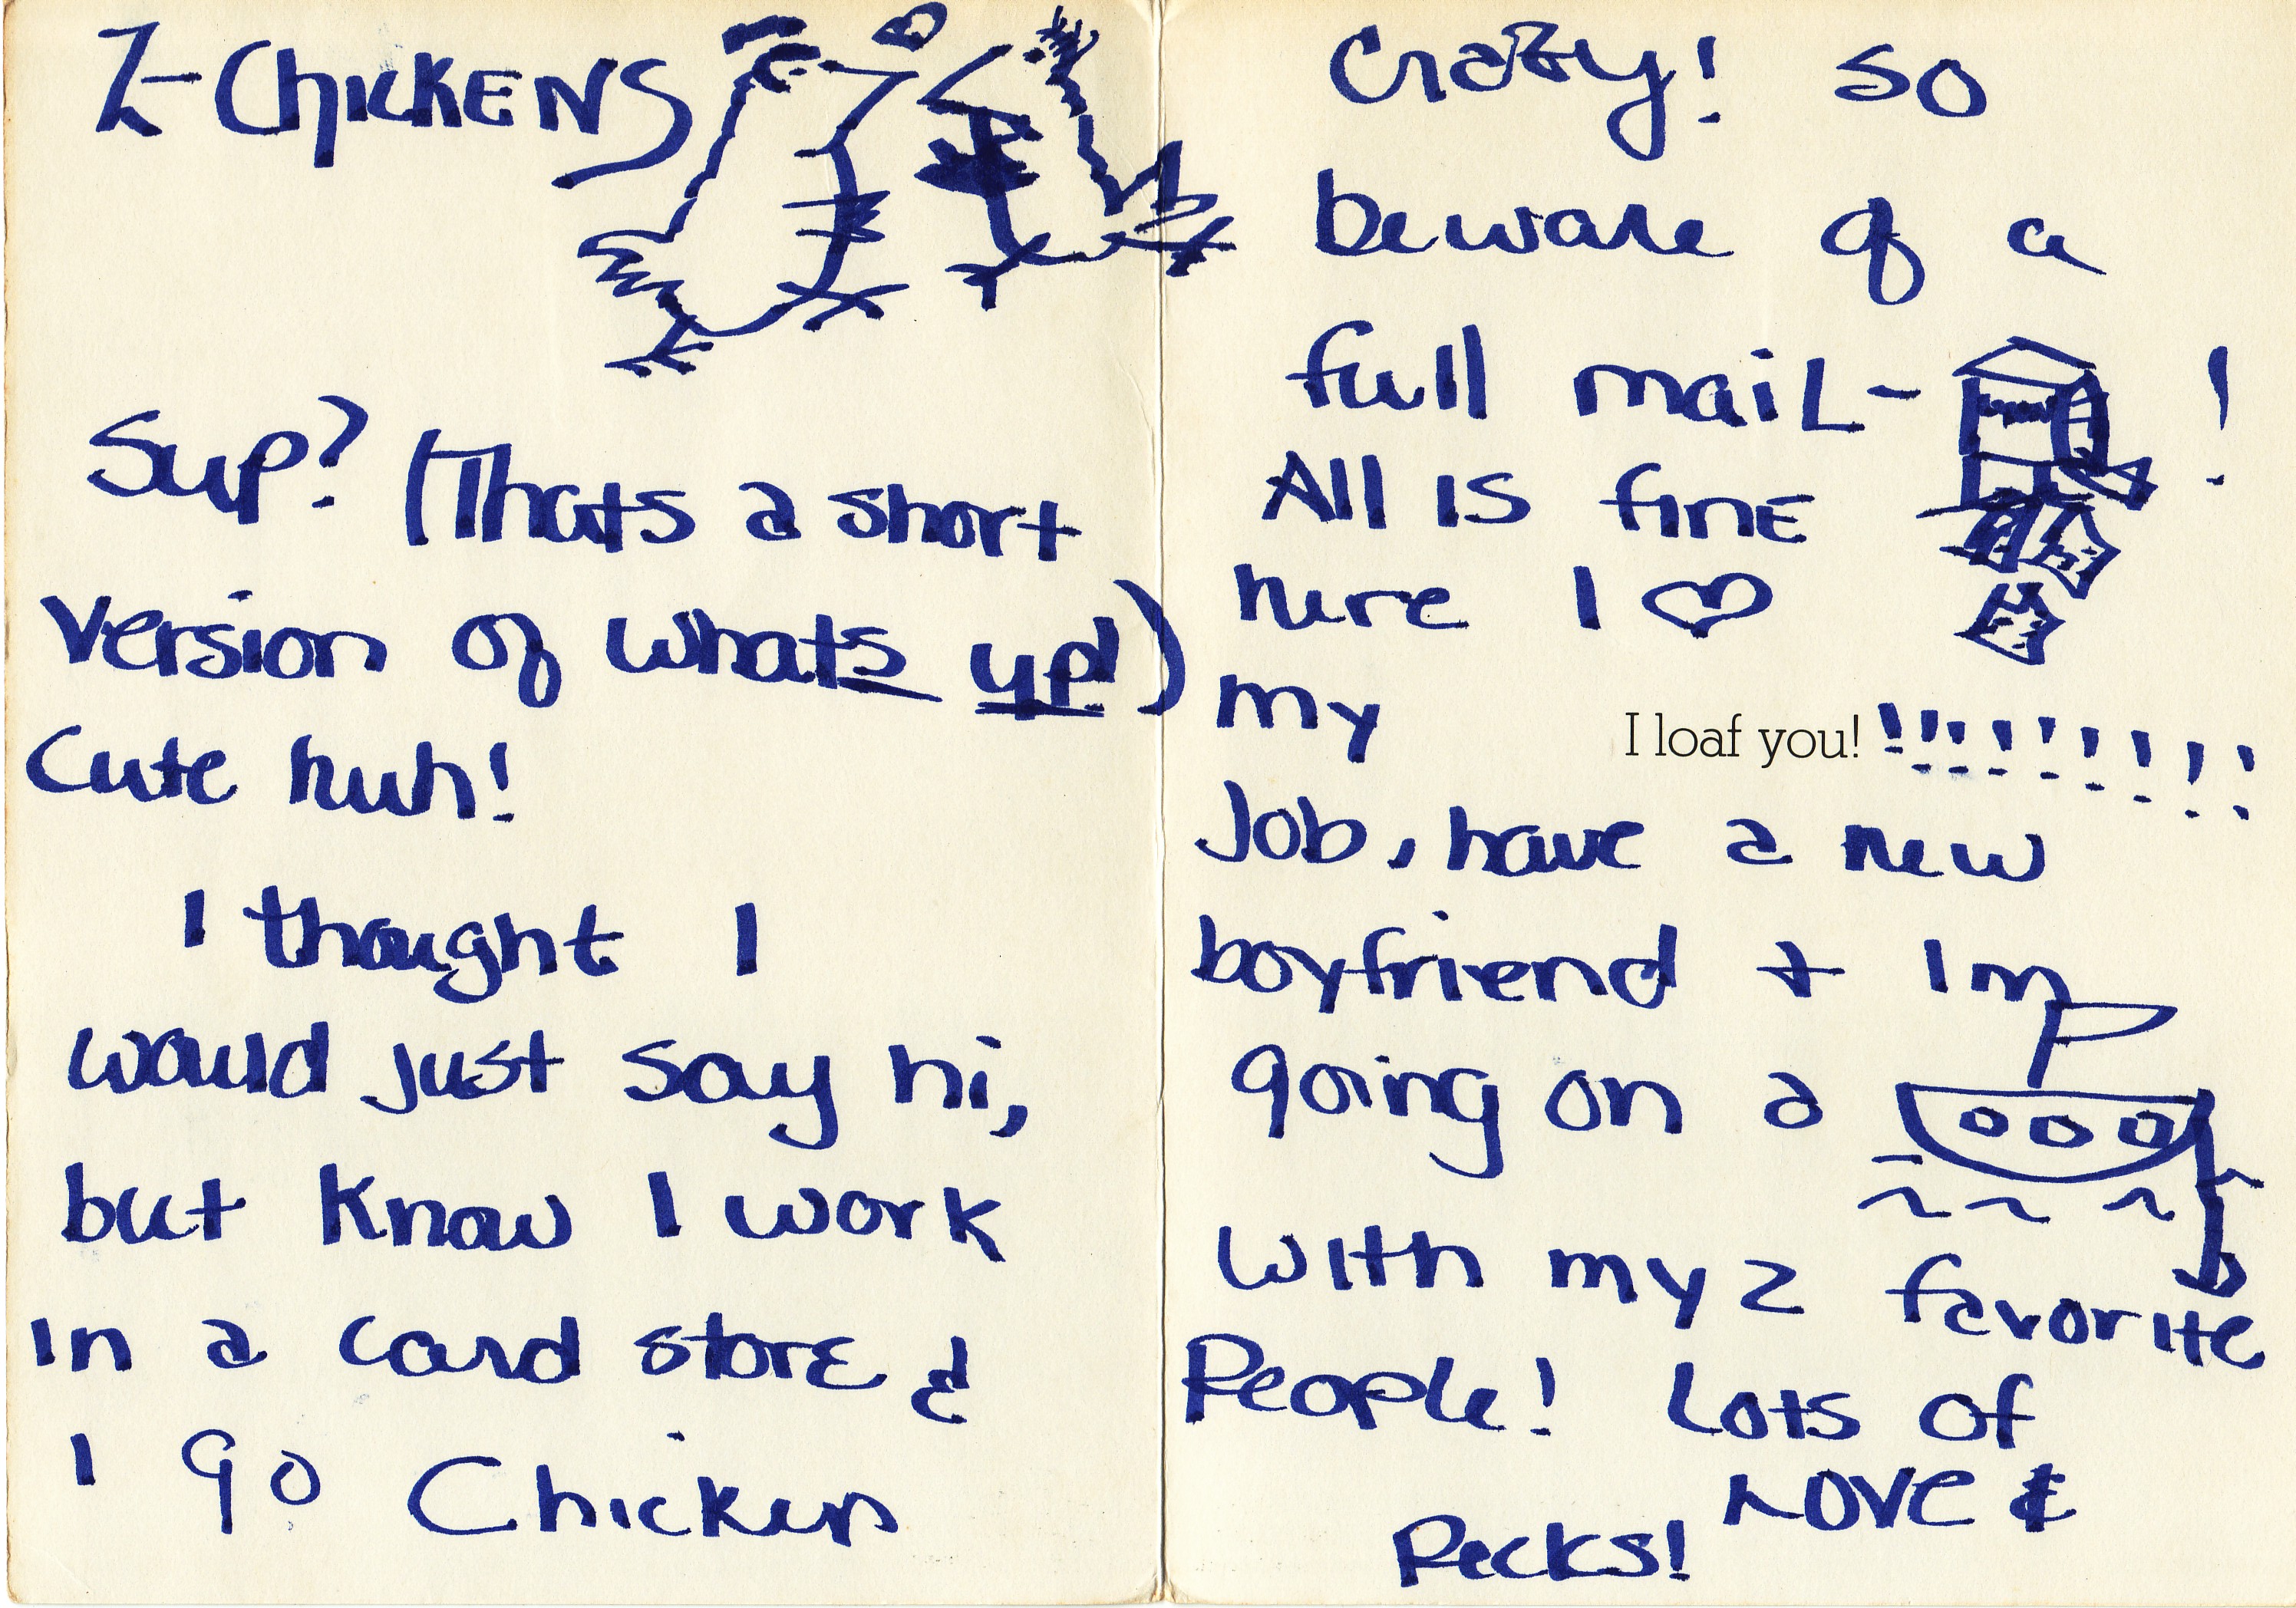 Z-ChickENS
Sup? (Thats a short
version of whats up!)
Cute huh!
I thought I
would just say hi,
but know I work
in a card store &
I go Chicken
Crazy! so
beware of a
full mail- !
All is fine
here I ♡
my
I loaf you! !!!!!!!!!
Job, have a new
boyfriend + Im
going on a
with my 2 favorite
People! Lots of
Love &
Pecks!